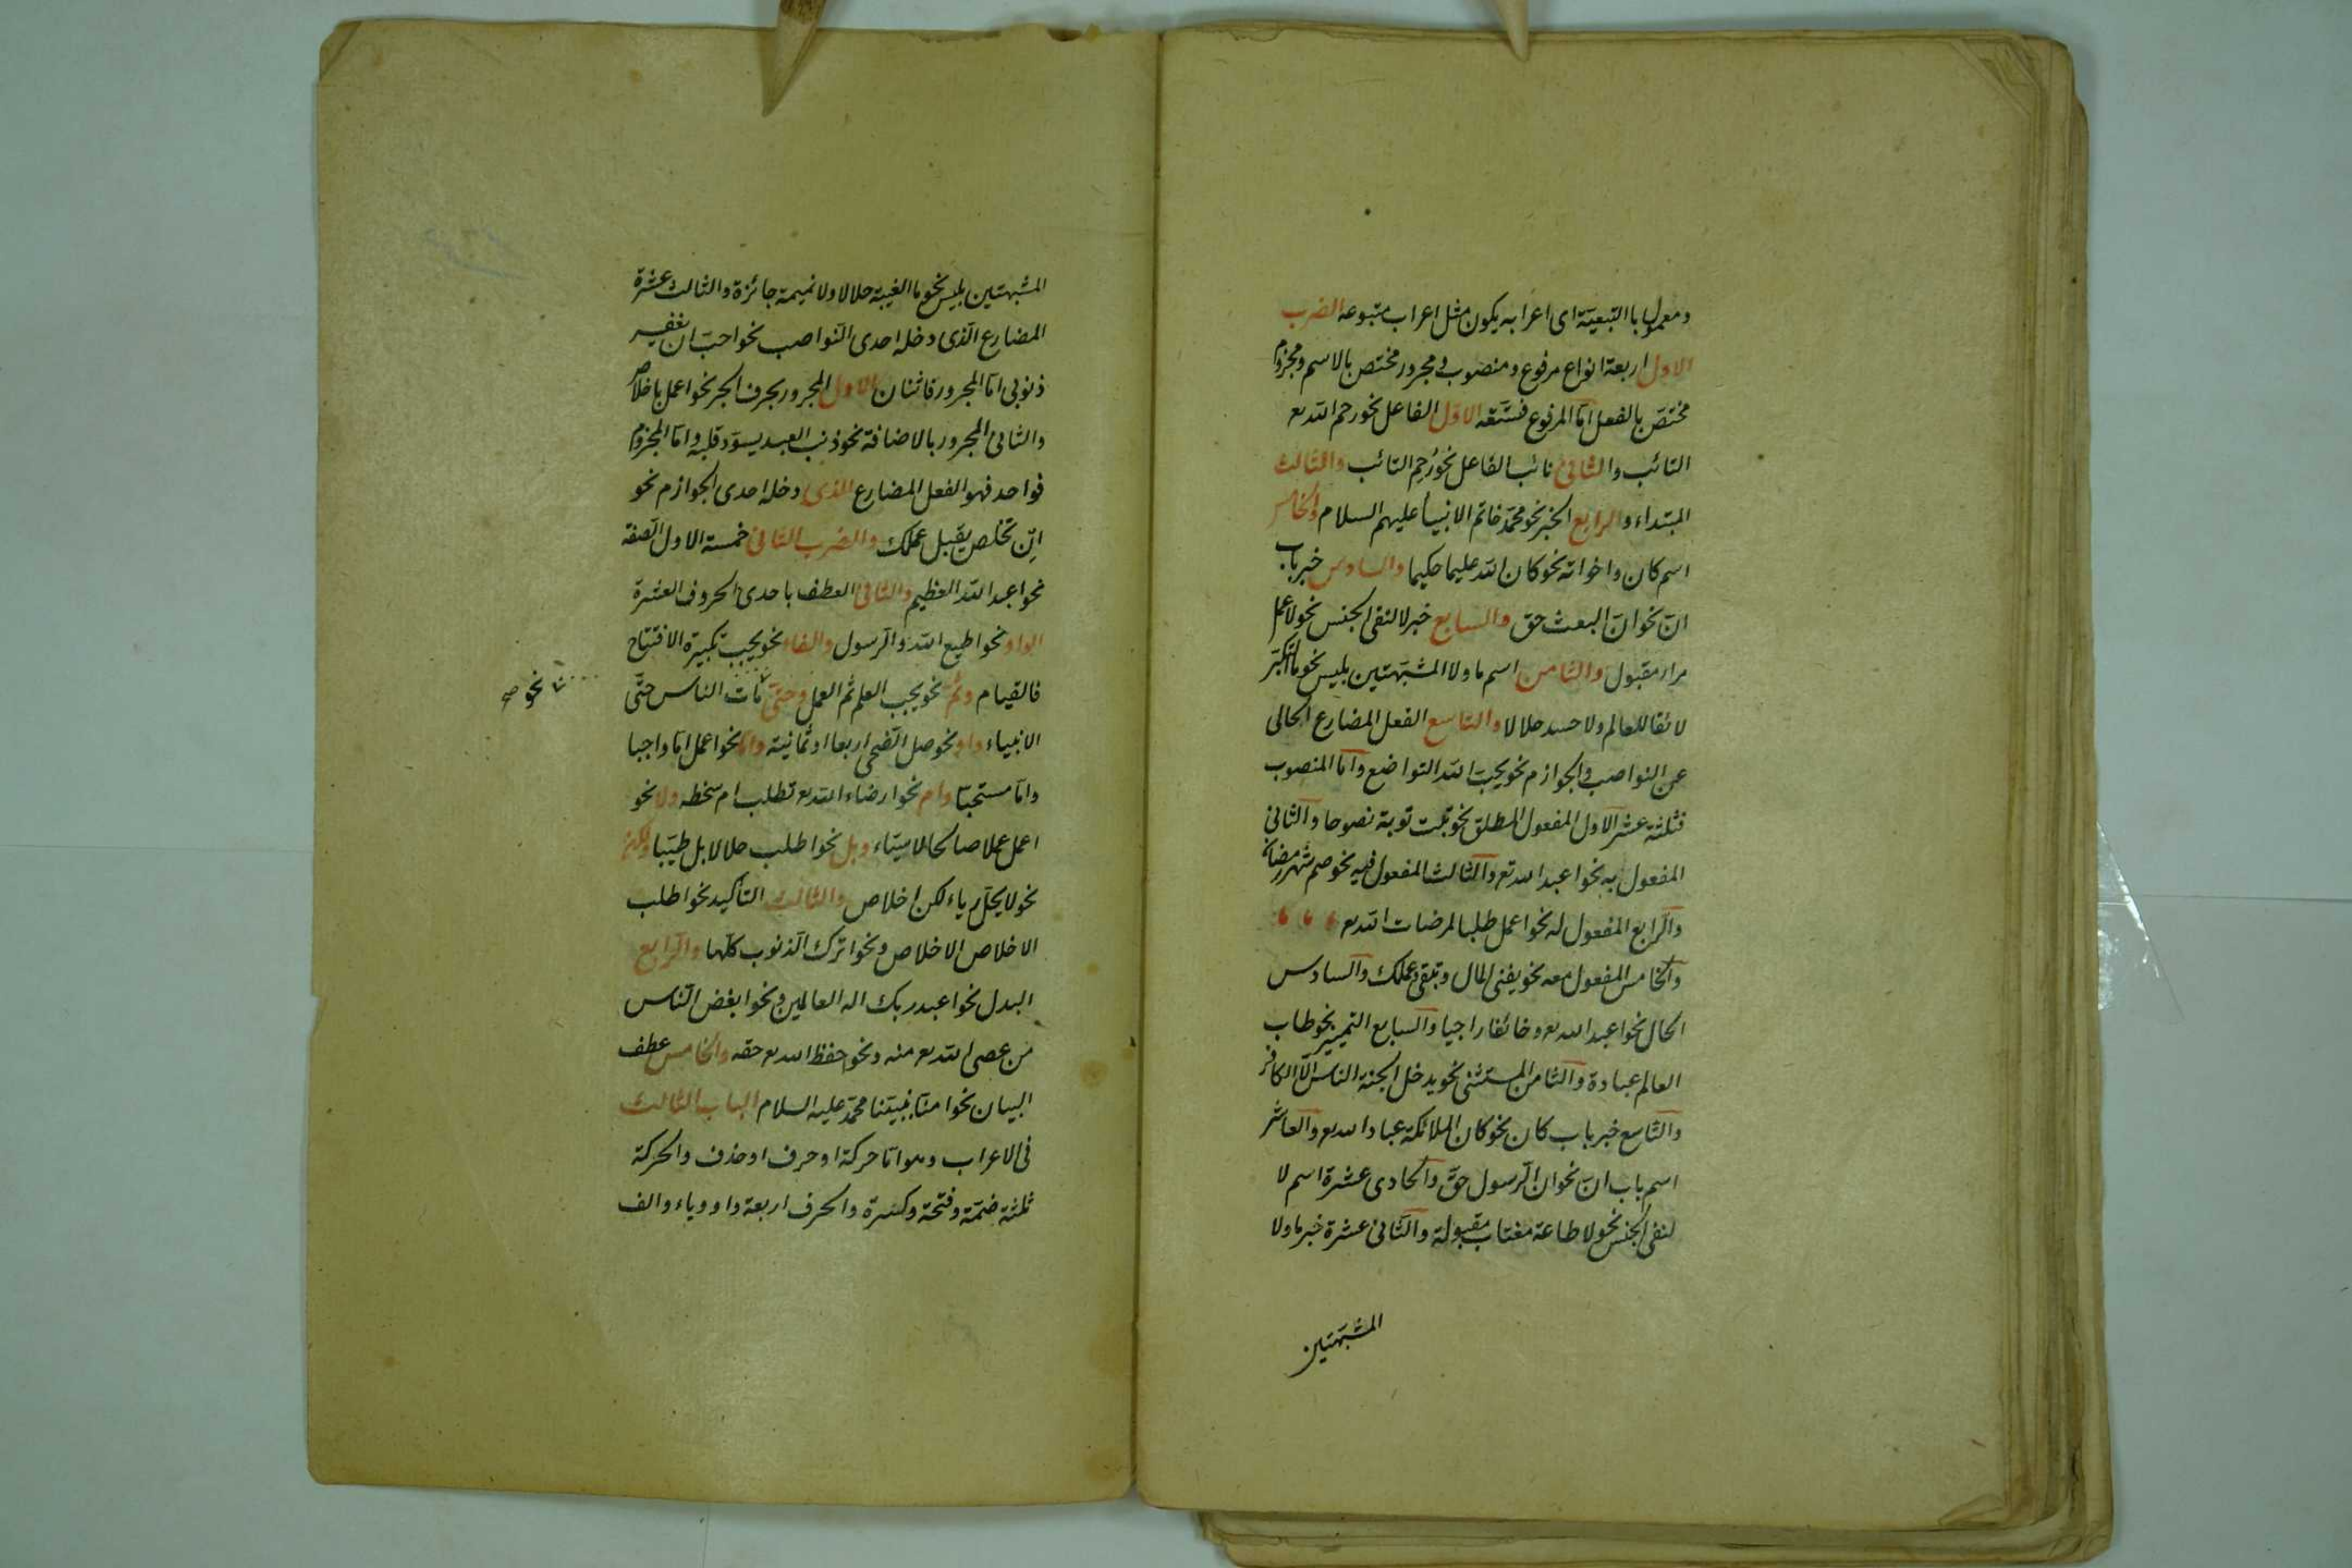 ومعمول باالتبعيّة اى اعرابه يكون مثل اعراب متبوعه الضرب
الاول اربعة انواع مرفوع ومنصوب ومجرور مختص بالاسم ومجزوم
مختصّ بالفعل امّا المرفوع فتسعة الاوّل الفاعل نحو رحم الله تع
التائب والثانى نائب الفاعل نحو رُحِم التائب والثالث
المبتداء والرابع الخبر نحو محمّد خاتم الانبياء عليهم السلام والخامس
اسم كان واخواته نحو كان الله عليما حكيما والسادس خبر باب
انّ نحو انّ البعث حق والسابع خبر لا لنفى الجنس نحو لا عمل
مراء مقبول والثامن اسم ما ولا المشبّهتين بليس نحو ما التكبّر
لائقا للعالم ولا حسد حلالا والتاسع الفعل المضارع الخالى
عن النواصب والجوازم نحو يحبّ الله التواضع وامّا المنصوب
فثلثة عشر الاول المفعول المطلق نحو تبت توبة نصوحا والثانى
المفعول به نحو اعبد الله تع والثالث المفعول فيه نحو صم شهر رمضان
والرّابع المفعول له نحو اعمل طلبا لمرضات الله تع
والخامس المفعول معه نحو يفنى المال وتبقى وعملك والسادس
الحال نحو اعبد الله تع وخائفا راجيا والسابع التمييز نحو طاب
العالم عبادة والثامن المستثنى نحو يدخل الجنة الناس الّا الكافر
والتاسع خبر باب كان نحو كان الملائكة عباد الله تع والعاشر
اسم باب انّ نحو ان الرسول حقّ والحادى عشرة اسم لا
لنفى الجنس نحو لا طاعة مغتاب مقبولة والثانى عشرة خبر ما ولا
المشبّهتين
المشبهتين بليس نحو ما الغيبة حلالا ولا نميمة جائزة والثالث عشرة
المضارع الّذى دخله احدى النّواصب نحو احبّ ان يغفر
ذنوبى امّا المجرور فاثنان الاول المجرور بحرف الجر نحو اعمل باخلاص
والثانى المجرور بالاضافة نحو ذنب العبد يسوّد قلبه وامّا المجزوم
فواحد فهو الفعل المضارع الذى دخله احدى الجوازم نحو
ان تخلص يقبل عملك والضرب الثانى خمسة الاول الصّفة
نحو اعبد الله العظيم والثانى العطف باحدى الحروف العشرة
الواو نحو اطيع الله والرسول والفاء نحو يجب تكبيرة الافتتاح
فالقيام وثمّ نحو يجب العلم ثم العمل وحتّى مات الناس حتّى
نحو صح
الانبياء واو نحو صل الضّحى اربعا او ثمانية وامّا نحو اعمل امّا واجبا
وامّا مستحبّا وام نحو ارضاء الله تع تطلب ام سخطه ولا نحو
اعمل عملا صالحا لا سيّاء وبل نحو اطلب حلالا بل طيّبا ولكن
نحو لا يحلّ رياء لكن اخلاص والثالث التأكيد نحو اطلب
الاخلاص الاخلاص ونحو اترك الذنوب كلّها والرّابع
البدل نحو اعبد ربك اله العالمين ونحو ابغض النّاس
من عصى الله تع منه ونحو احفظ الله تع حقه والخامس عطف
البيان نحو امنّا بنبيّنا محمّد عليه السلام الباب الثالث
فى الاعراب وهو امّا حركة او حرف او حذف والحركة
ثلثة ضمّة وفتحة وكسرة والحرف اربعة واو وياء والف